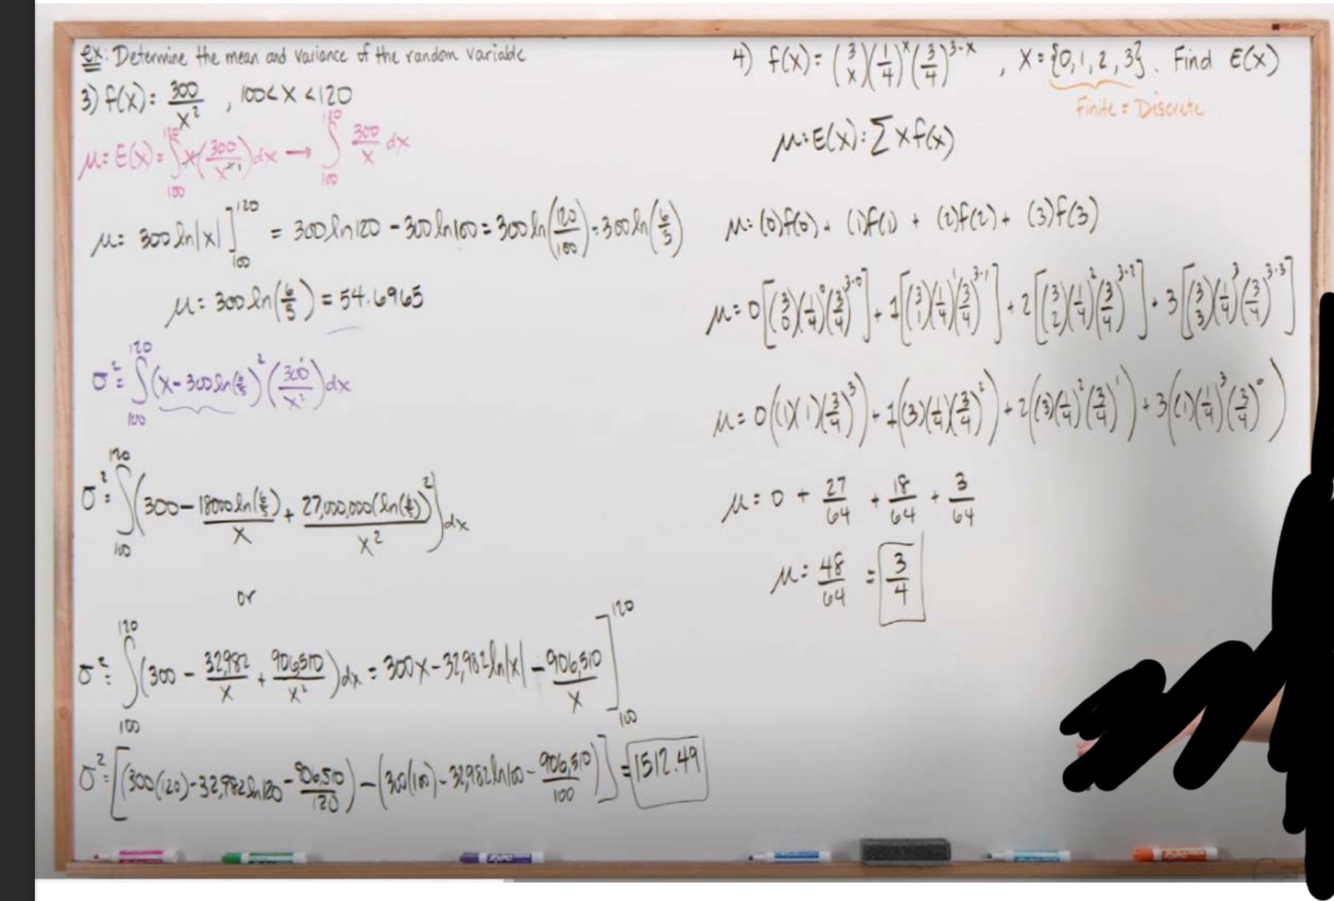 ex: Determine the mean and variance of the random variable
3) f(x) = 300/x² , 100 < x < 120
μ = E(x) = ∫₁₀₀¹²⁰ x(300/x²)dx → ∫₁₀₀¹²⁰ 300/x dx
μ = 300 ln|x| ]₁₀₀¹²⁰ = 300 ln120 - 300 ln100 = 300 ln(120/100) = 300 ln(6/5)
μ = 300 ln(6/5) = 54.6965
σ² = ∫₁₀₀¹²⁰ (x - 300 ln(6/5))² (300/x²)dx
σ² = ∫₁₀₀¹²⁰ (300 - 18000 ln(6/5)/x + 27,000,000(ln(6/5))²/x²)dx
or
σ² = ∫₁₀₀¹²⁰ (300 - 32,982/x + 906,510/x²)dx = 300x - 32,982 ln|x| - 906,510/x ]₁₀₀¹²⁰
σ² = [(300(120) - 32,982 ln120 - 906,510/120) - (300(100) - 32,982 ln100 - 906,510/100)] = 1512.49
4) f(x) = (3 x)(1/4)ˣ(3/4)³⁻ˣ , x = {0, 1, 2, 3}. Find E(x)
Finite = Discrete
μ = E(x) = Σ x f(x)
μ = (0)f(0) + (1)f(1) + (2)f(2) + (3)f(3)
μ = 0[(3 0)(1/4)⁰(3/4)³⁻⁰] + 1[(3 1)(1/4)¹(3/4)³⁻¹] + 2[(3 2)(1/4)²(3/4)³⁻²] + 3[(3 3)(1/4)³(3/4)³⁻³]
μ = 0((1)(1)(3/4)³) + 1((3)(1/4)(3/4)²) + 2((3)(1/4)²(3/4)¹) + 3((1)(1/4)³(3/4)⁰)
μ = 0 + 27/64 + 18/64 + 3/64
μ = 48/64 = 3/4